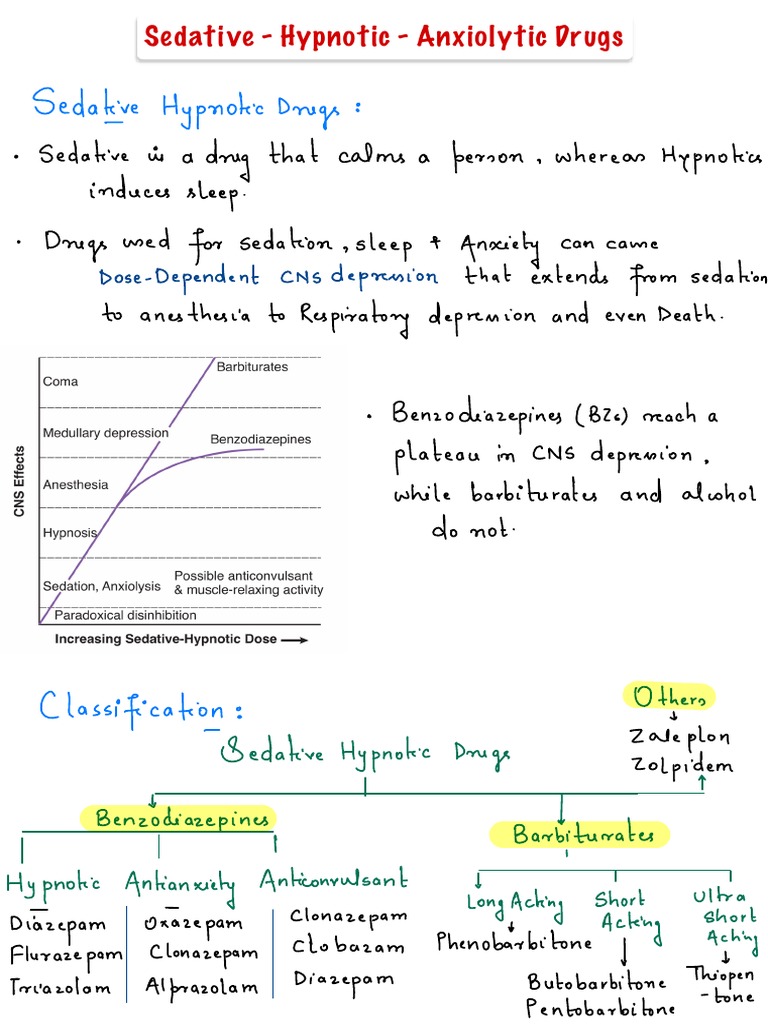 Sedative - Hypnotic - Anxiolytic Drugs
Sedative Hypnotic Drugs :
• Sedative is a drug that calms a person, whereas Hypnotics
induces sleep.
• Drugs used for sedation, sleep + Anxiety can cause
Dose-Dependent CNS depression that extends from sedation
to anesthesia to Respiratory depression and even Death.
CNS Effects
Coma
Barbiturates
Medullary depression
Benzodiazepines
Anesthesia
Hypnosis
Sedation, Anxiolysis
Possible anticonvulsant
& muscle-relaxing activity
Paradoxical disinhibition
Increasing Sedative-Hypnotic Dose
• Benzodiazepines (BZs) reach a
plateau in CNS depression,
while barbiturates and alcohol
do not.
Classification :
Others
Zaleplon
Zolpidem
Sedative Hypnotic Drugs
Benzodiazepines
Barbiturates
Hypnotic Antianxiety Anticonvulsant
Diazepam
Flurazepam
Triazolam
Oxazepam
Clonazepam
Alprazolam
Clonazepam
Clobazam
Diazepam
Long Acting
Phenobarbitone
Short
Acting
Butobarbitone
Pentobarbitone
Ultra
Short
Acting
Thiopen
-tone